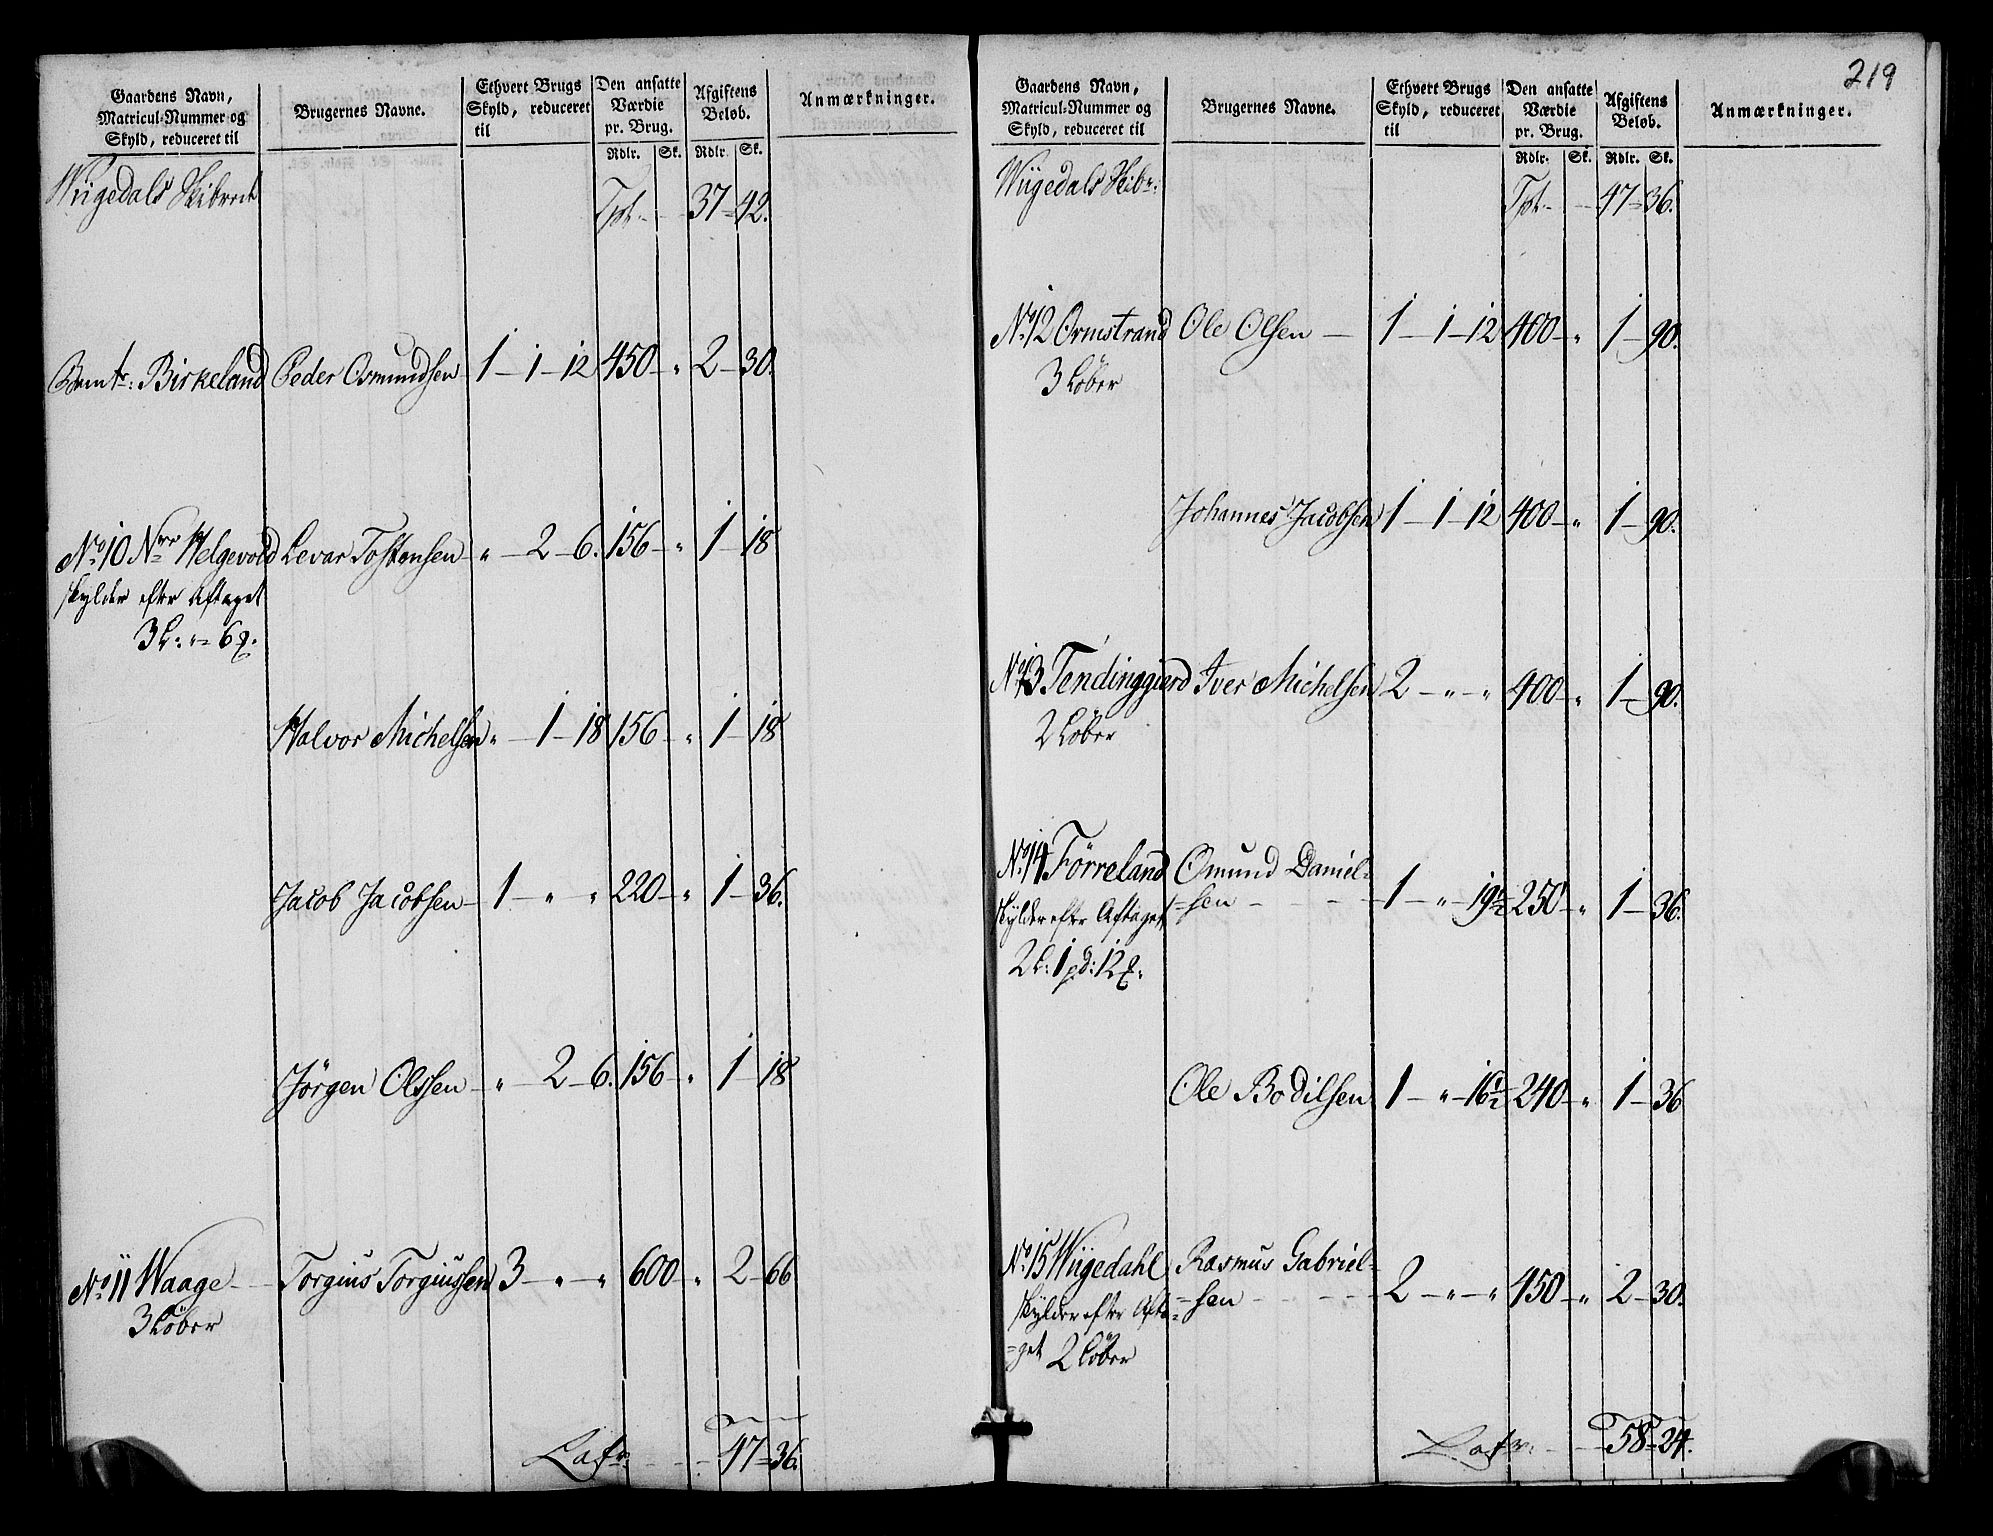 219
Gaardens Navn, Matricul-Nummer og Skyld, reduceret til | Brugernes Navne. | Ethvert Brugs Skyld, reduceret til | Den ansatte Værdie pr. Brug. Rdlr. Sk. | Afgiftens Beløb. Rdlr. Sk. | Anmærkninger.
Wiigedals Skibred
Tpt. - - 37 = 42.
Birkeland Peder Osmundsen 1 - 1 - 12 450 - " 2 - 30.
No. 10 Nrr Helgevold Levar Tostensen - " - 2 - 6. 156 - " 1 - 18
skylder efter Aftaget
3 L: " = 6 
Halvor Michelsen " - 1 - 18 156 - " 1 - 18
Jacob Jacobsen - 1 - " " 220 - " 1 - 36.
Jørgen Olssen - " - 2 - 6. 156 - " 1 - 18
No. 11 Waage - Torgius Torgiussen 3 - " - " 600 " 2 - 66
3 Løber
Lats: - - - 47 = 36.
Gaardens Navn, Matricul-Nummer og Skyld, reduceret til | Brugernes Navne. | Ethvert Brugs Skyld, reduceret til | Den ansatte Værdie pr. Brug. Rdlr. Sk. | Afgiftens Beløb. Rdlr. Sk. | Anmærkninger.
Wiigedals Skibr:
Tpt. - - 47 = 36.
No. 12 Ormstrand Ole Olsen - 1 - 1 - 12 400 - " 1 - 90.
3 Løber
Johannes Jacobsen 1 - 1 - 12 400 - " 1 - 90.
No. 13 Tendinggierd Iver Michelsen 2 - " - " 400 - " 1 - 90.
2 Løber
No. 14 Førreland Osmund Daniel=
skylder efter Aftaget =sen - - - 1 - " - 19½ 250 - " 1 - 36.
2 L: 1 pd: 12 
Ole Bodilsen 1 - " - 16½ 240 - " 1 - 36
No. 15 Wiigedahl Rasmus Gabriel=
skylder efter Afta= =sen - - - 2 - " - " 450 - " 2 - 30.
=get 2 Løber
Lats: - - 58 = 24.